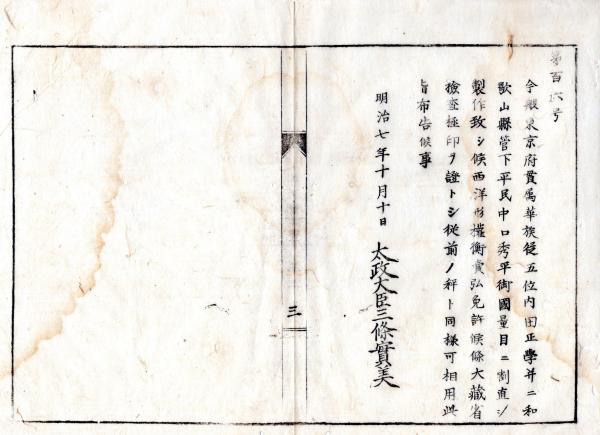 第百六号
今般東京府貫属華族従五位内田正學并ニ和
歌山縣管下平民中口秀平御國量目ニ割直シ
製作致シ候西洋形權衡賣弘免許候條大藏省
檢查極印ヲ證トシ従前ノ秤ト同様可相用此
旨布告候事
明治七年十月十日
太政大臣三條實美
三